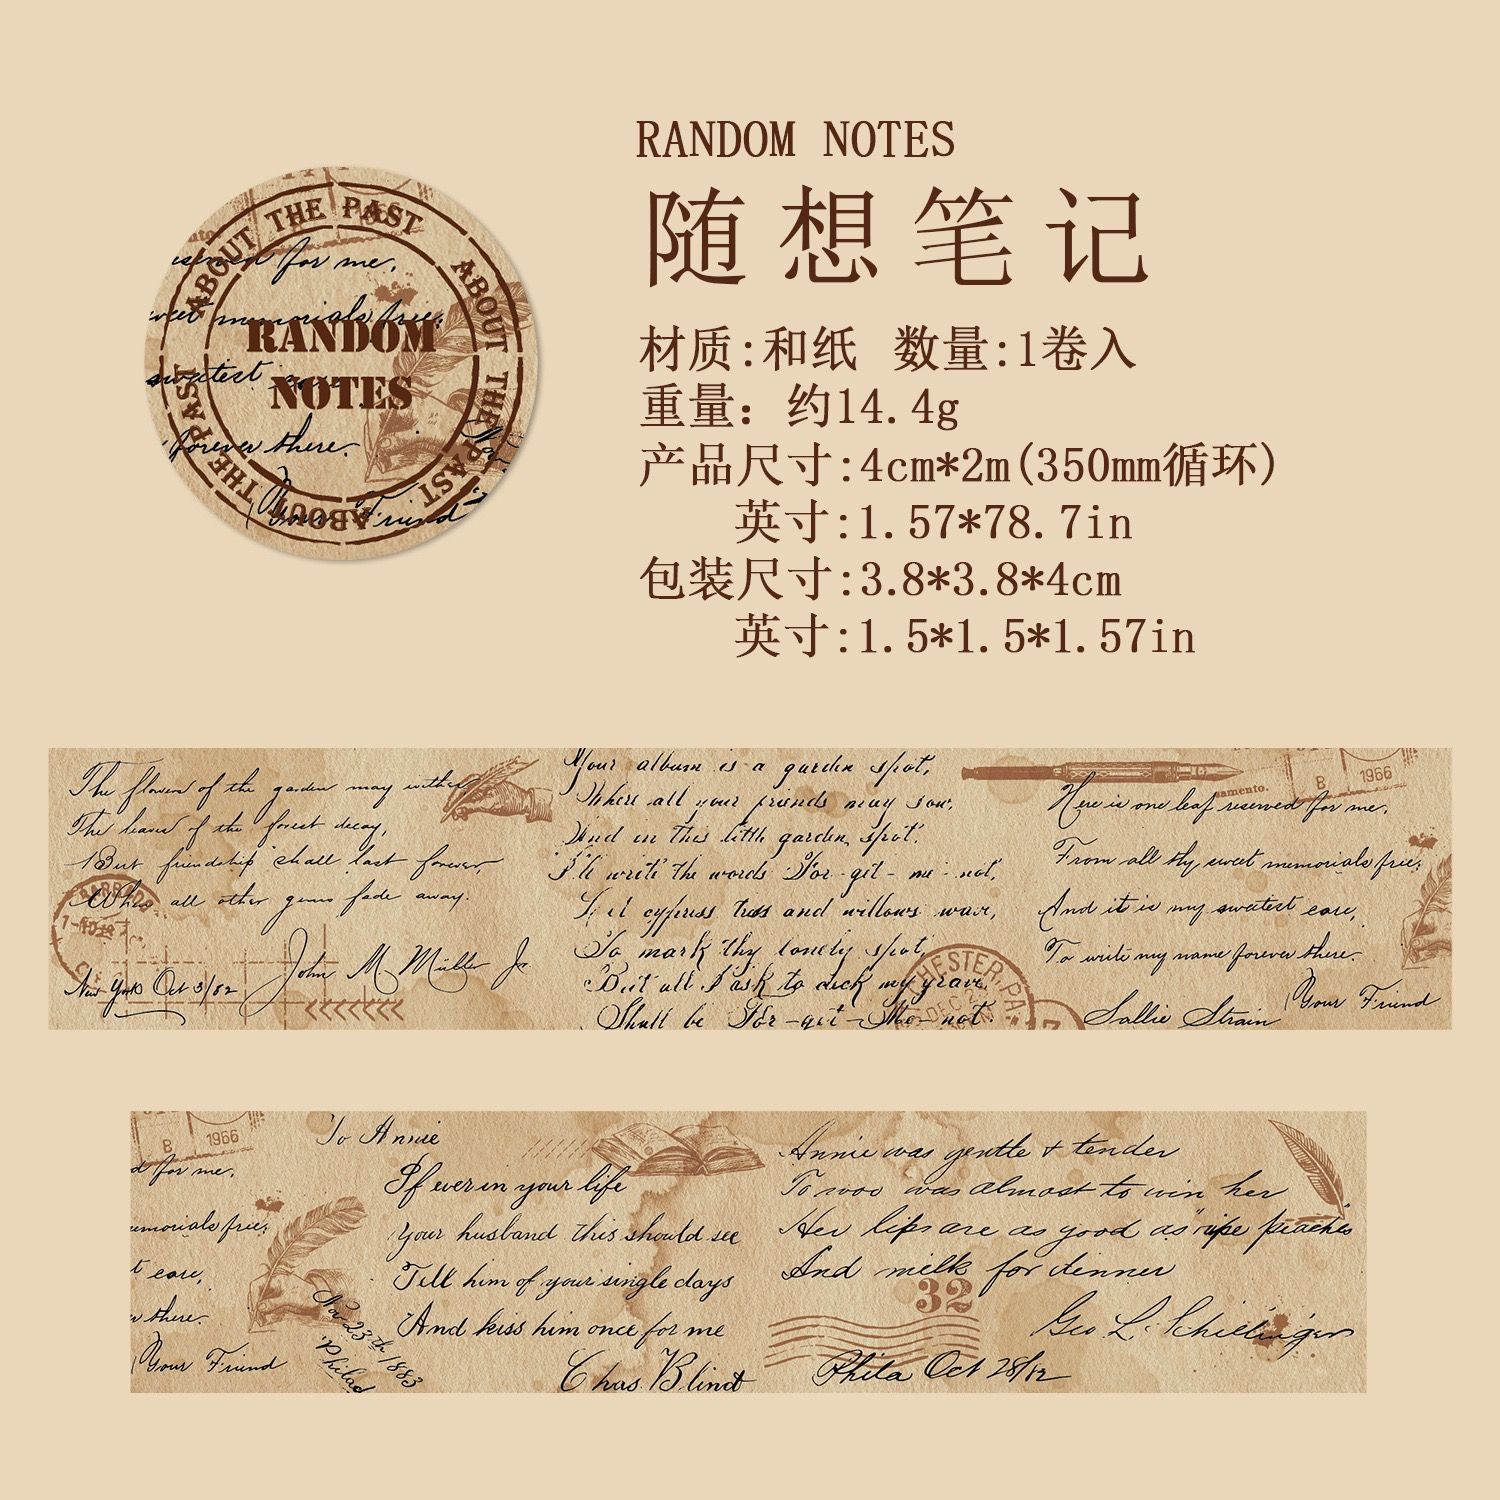 RANDOM NOTES
随想笔记
材质:和纸 数量:1卷入
重量：约14.4g
产品尺寸:4cm*2m(350mm循环)
英寸:1.57*78.7in
包装尺寸:3.8*3.8*4cm
英寸:1.5*1.5*1.57in
ABOUT THE PAST
ABOUT THE PAST
ABOUT THE PAST
RANDOM
NOTES
for me,
sweet memorials free;
sweetest
forever there.
Your Friend
The flowers of the garden may wither
The leaves of the forest decay,
But friendship shall last forever,
When all other gems fade away.
John M. Müller Jr
New York Oct 3/82
Your album is a garden spot,
Where all your friends may sow,
And in this little garden spot,
I'll write the words For-get-me-not,
Let cypress trees and willows wave,
To mark thy lonely spot,
But all I ask to deck my grave
Shall be For-get-Me-not.
CHESTER, PA.
DEC
B
1966
amento.
Here is one leaf reserved for me,
From all thy sweet memorials free;
And it is my sweetest care,
To write my name forever there.
Your Friend
Sallie Strain
B
1966
d for me,
emorials free;
t care,
there.
Your Friend
Nov 23th 1883
Philad
To Annie
If ever in your life
Your husband this should see
Tell him of your single days
And kiss him once for me
Chas. Blind
Annie was gentle & tender
To woo was almost to win her
Her lips are as good as "ripe peaches"
And milk for dinner
32
Geo L. Schillinger
Phila Oct 28/82